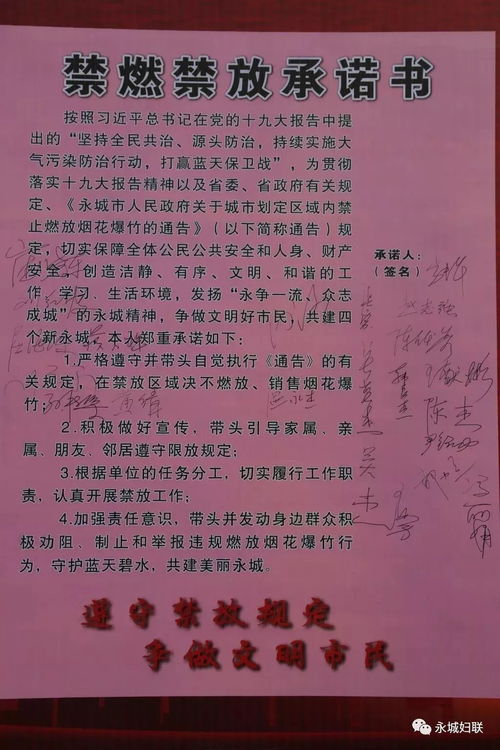 禁燃禁放承诺书
按照习近平总书记在党的十九大报告中提
出的“坚持全民共治、源头防治，持续实施大
气污染防治行动，打赢蓝天保卫战”，为贯彻
落实十九大报告精神以及省委、省政府有关规
定、《永城市人民政府关于城市划定区域内禁
止燃放烟花爆竹的通告》（以下简称通告）规
定，切实保障全体公民公共安全和人身、财产
安全，创造洁静、有序、文明、和谐的工
作、学习、生活环境，发扬“永争一流、众志
成城”的永城精神，争做文明好市民，共建四
个新永城。本人郑重承诺如下：
1.严格遵守并带头自觉执行《通告》的有
关规定，在禁放区域决不燃放、销售烟花爆
竹；
2.积极做好宣传，带头引导家属、亲
属、朋友、邻居遵守限放规定；
3.根据单位的任务分工，切实履行工作职
责，认真开展禁放工作；
4.加强责任意识，带头并发动身边群众积
极劝阻、制止和举报违规燃放烟花爆竹行
为，守护蓝天碧水，共建美丽永城。
承诺人：
（签名）
遵守禁放规定
争做文明市民
永城妇联